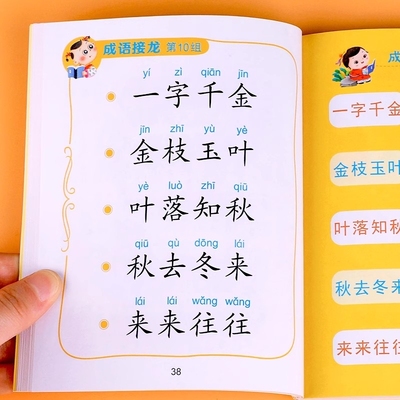 成语接龙 第10组
yí zì qiān jīn
一字千金
jīn zhī yù yè
金枝玉叶
yè luò zhī qiū
叶落知秋
qiū qù dōng lái
秋去冬来
lái lái wǎng wǎng
来来往往
38
成
一字千金
金枝玉叶
叶落知秋
秋去冬来
来来往往